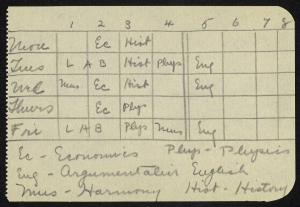 1 2 3 4 5 6 7 8
Mon Ec Hist
Tues L A B Hist Phys Eng
Wed Mus Ec Hist Eng
Thurs Ec Phys
Fri L A B Phys Mus Eng
Ec - Economics Phys - Physics
Eng - Argumentativ English
Mus - Harmony Hist - History